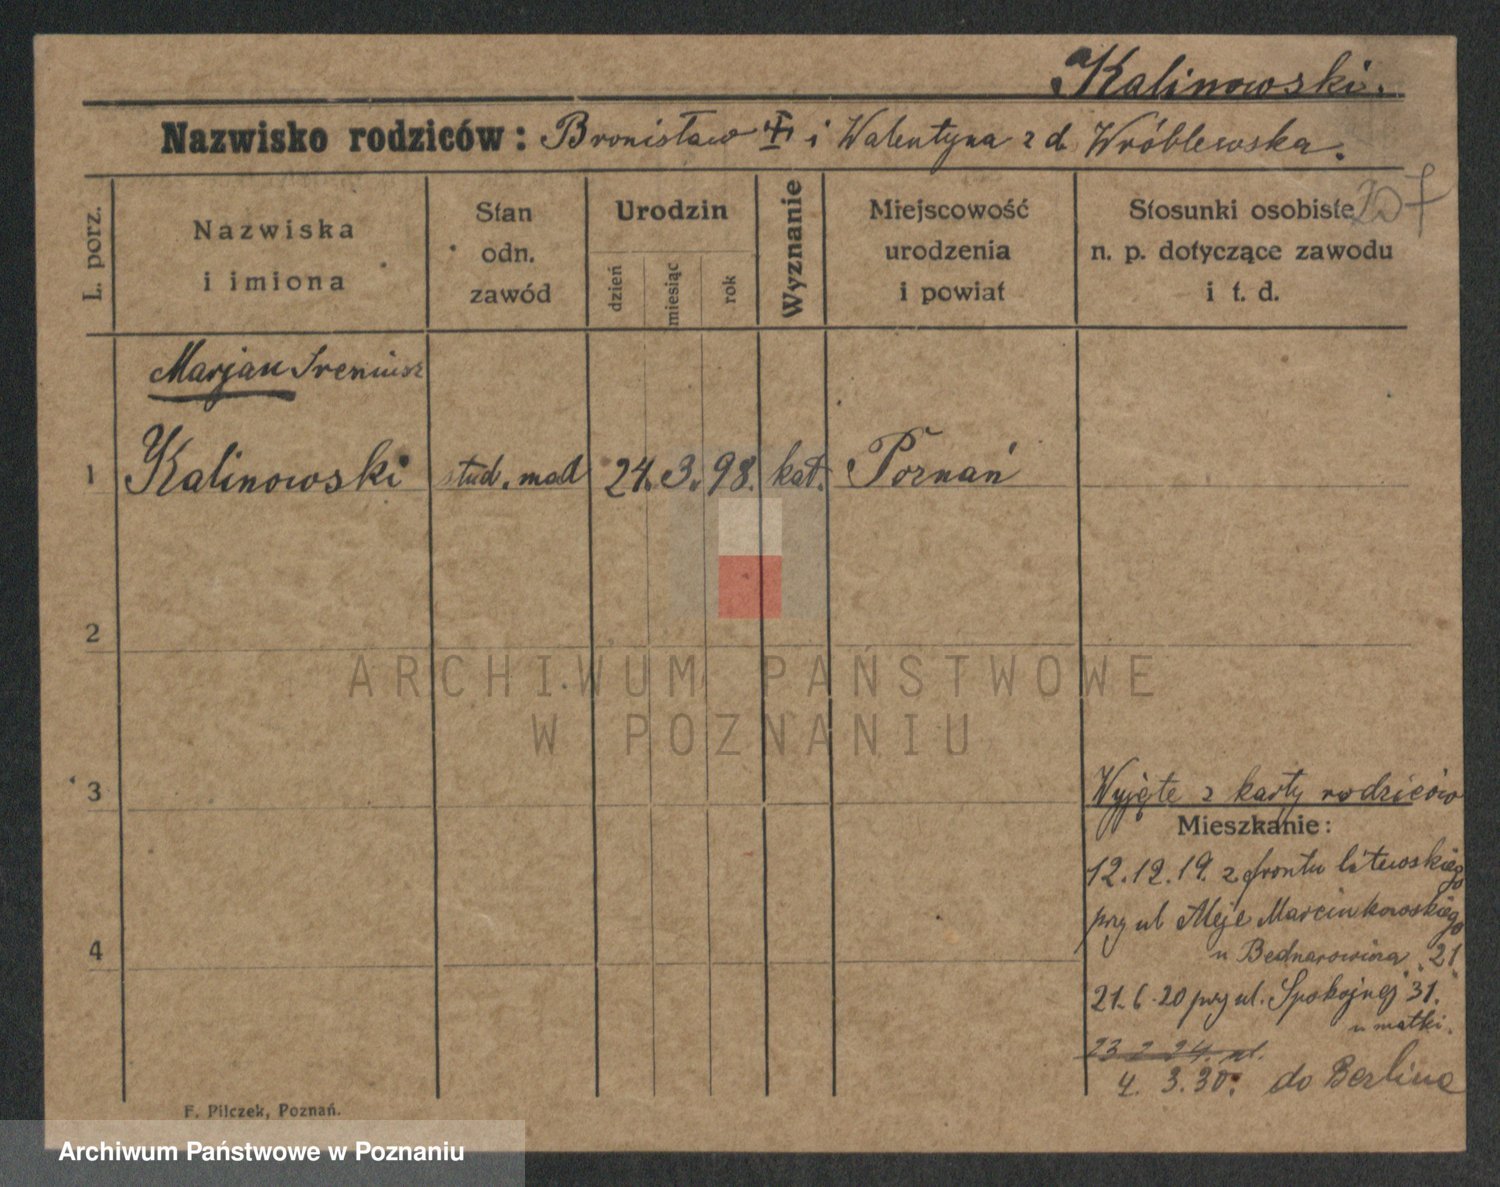 Kalinowski.
Nazwisko rodziców: Bronisław i Walentyna z d. Wróblewska.
207
L. porz.
Nazwiska
i imiona
Stan
odn.
zawód
Urodzin
dzień
miesiąc
rok
Wyznanie
Miejscowość
urodzenia
i powiat
Stosunki osobiste
n. p. dotyczące zawodu
i t. d.
Marjan Ireniusz
1 Kalinowski stud. med 24. 3. 98. kat. Poznań
2
3
4
Wyjęte z karty rodziców
Mieszkanie:
12.12.19. z frontu litewskiego
przy ul Aleje Marcinkowskiego
u Bednarowicza 21
21.6.20 przy ul. Spokojnej 31.
u matki.
23 2 24. ul.
4. 3. 30. do Berlina
F. Pilczek, Poznań.
ARCHIWUM PAŃSTWOWE
W POZNANIU
Archiwum Państwowe w Poznaniu